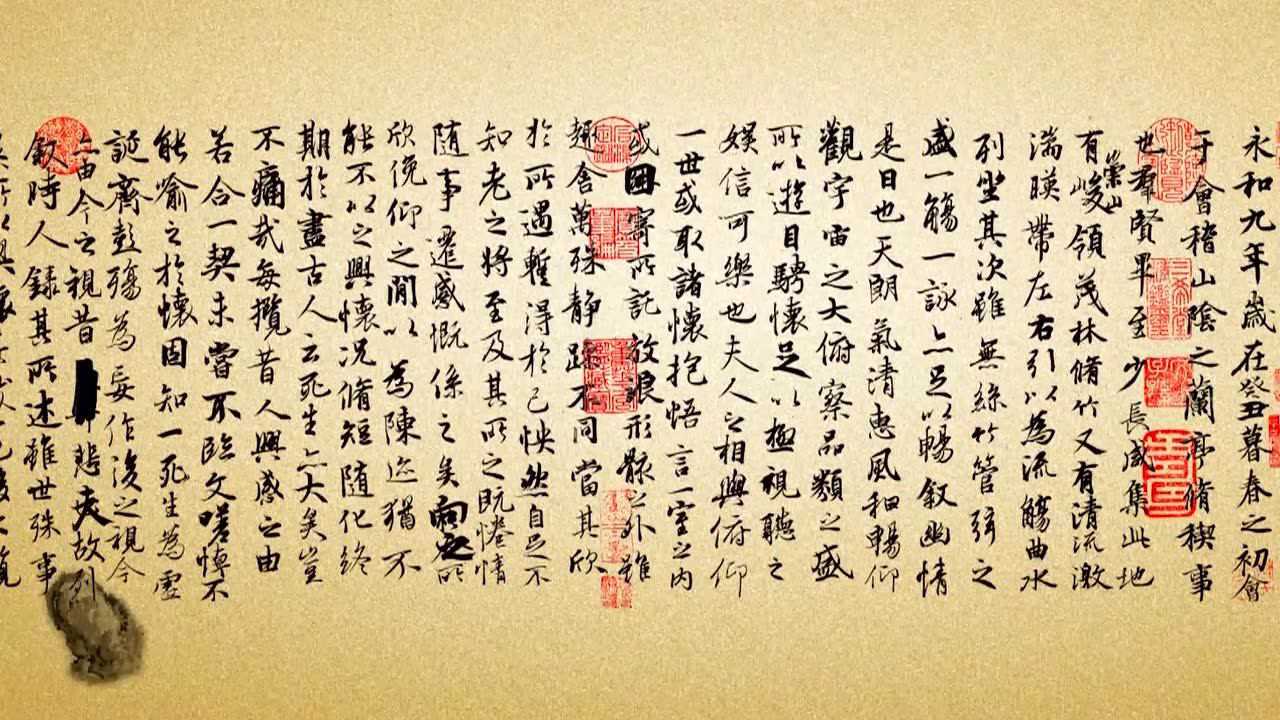 永和九年歲在癸丑暮春之初會
于會稽山陰之蘭亭脩稧事
也羣賢畢至少長咸集此地
有崇山峻領茂林脩竹又有清流激
湍暎帶左右引以為流觴曲水
列坐其次雖無絲竹管弦之
盛一觴一詠亦足以暢敘幽情
是日也天朗氣清惠風和暢仰
觀宇宙之大俯察品類之盛
所以遊目騁懷足以極視聽之
娛信可樂也夫人之相與俯仰
一世或取諸懷抱悟言一室之內
或因寄所託放浪形骸之外雖
趣舍萬殊靜躁不同當其欣
於所遇暫得於己怏然自足不
知老之將至及其所之既惓情
隨事遷感慨係之矣向之所
欣俛仰之間以為陳迹猶不
能不以之興懷況脩短隨化終
期於盡古人云死生亦大矣豈
不痛哉每攬昔人興感之由
若合一契未嘗不臨文嗟悼不
能喻之於懷固知一死生為虛
誕齊彭殤為妄作後之視今
亦由今之視昔悲夫故列
敘時人錄其所述雖世殊事